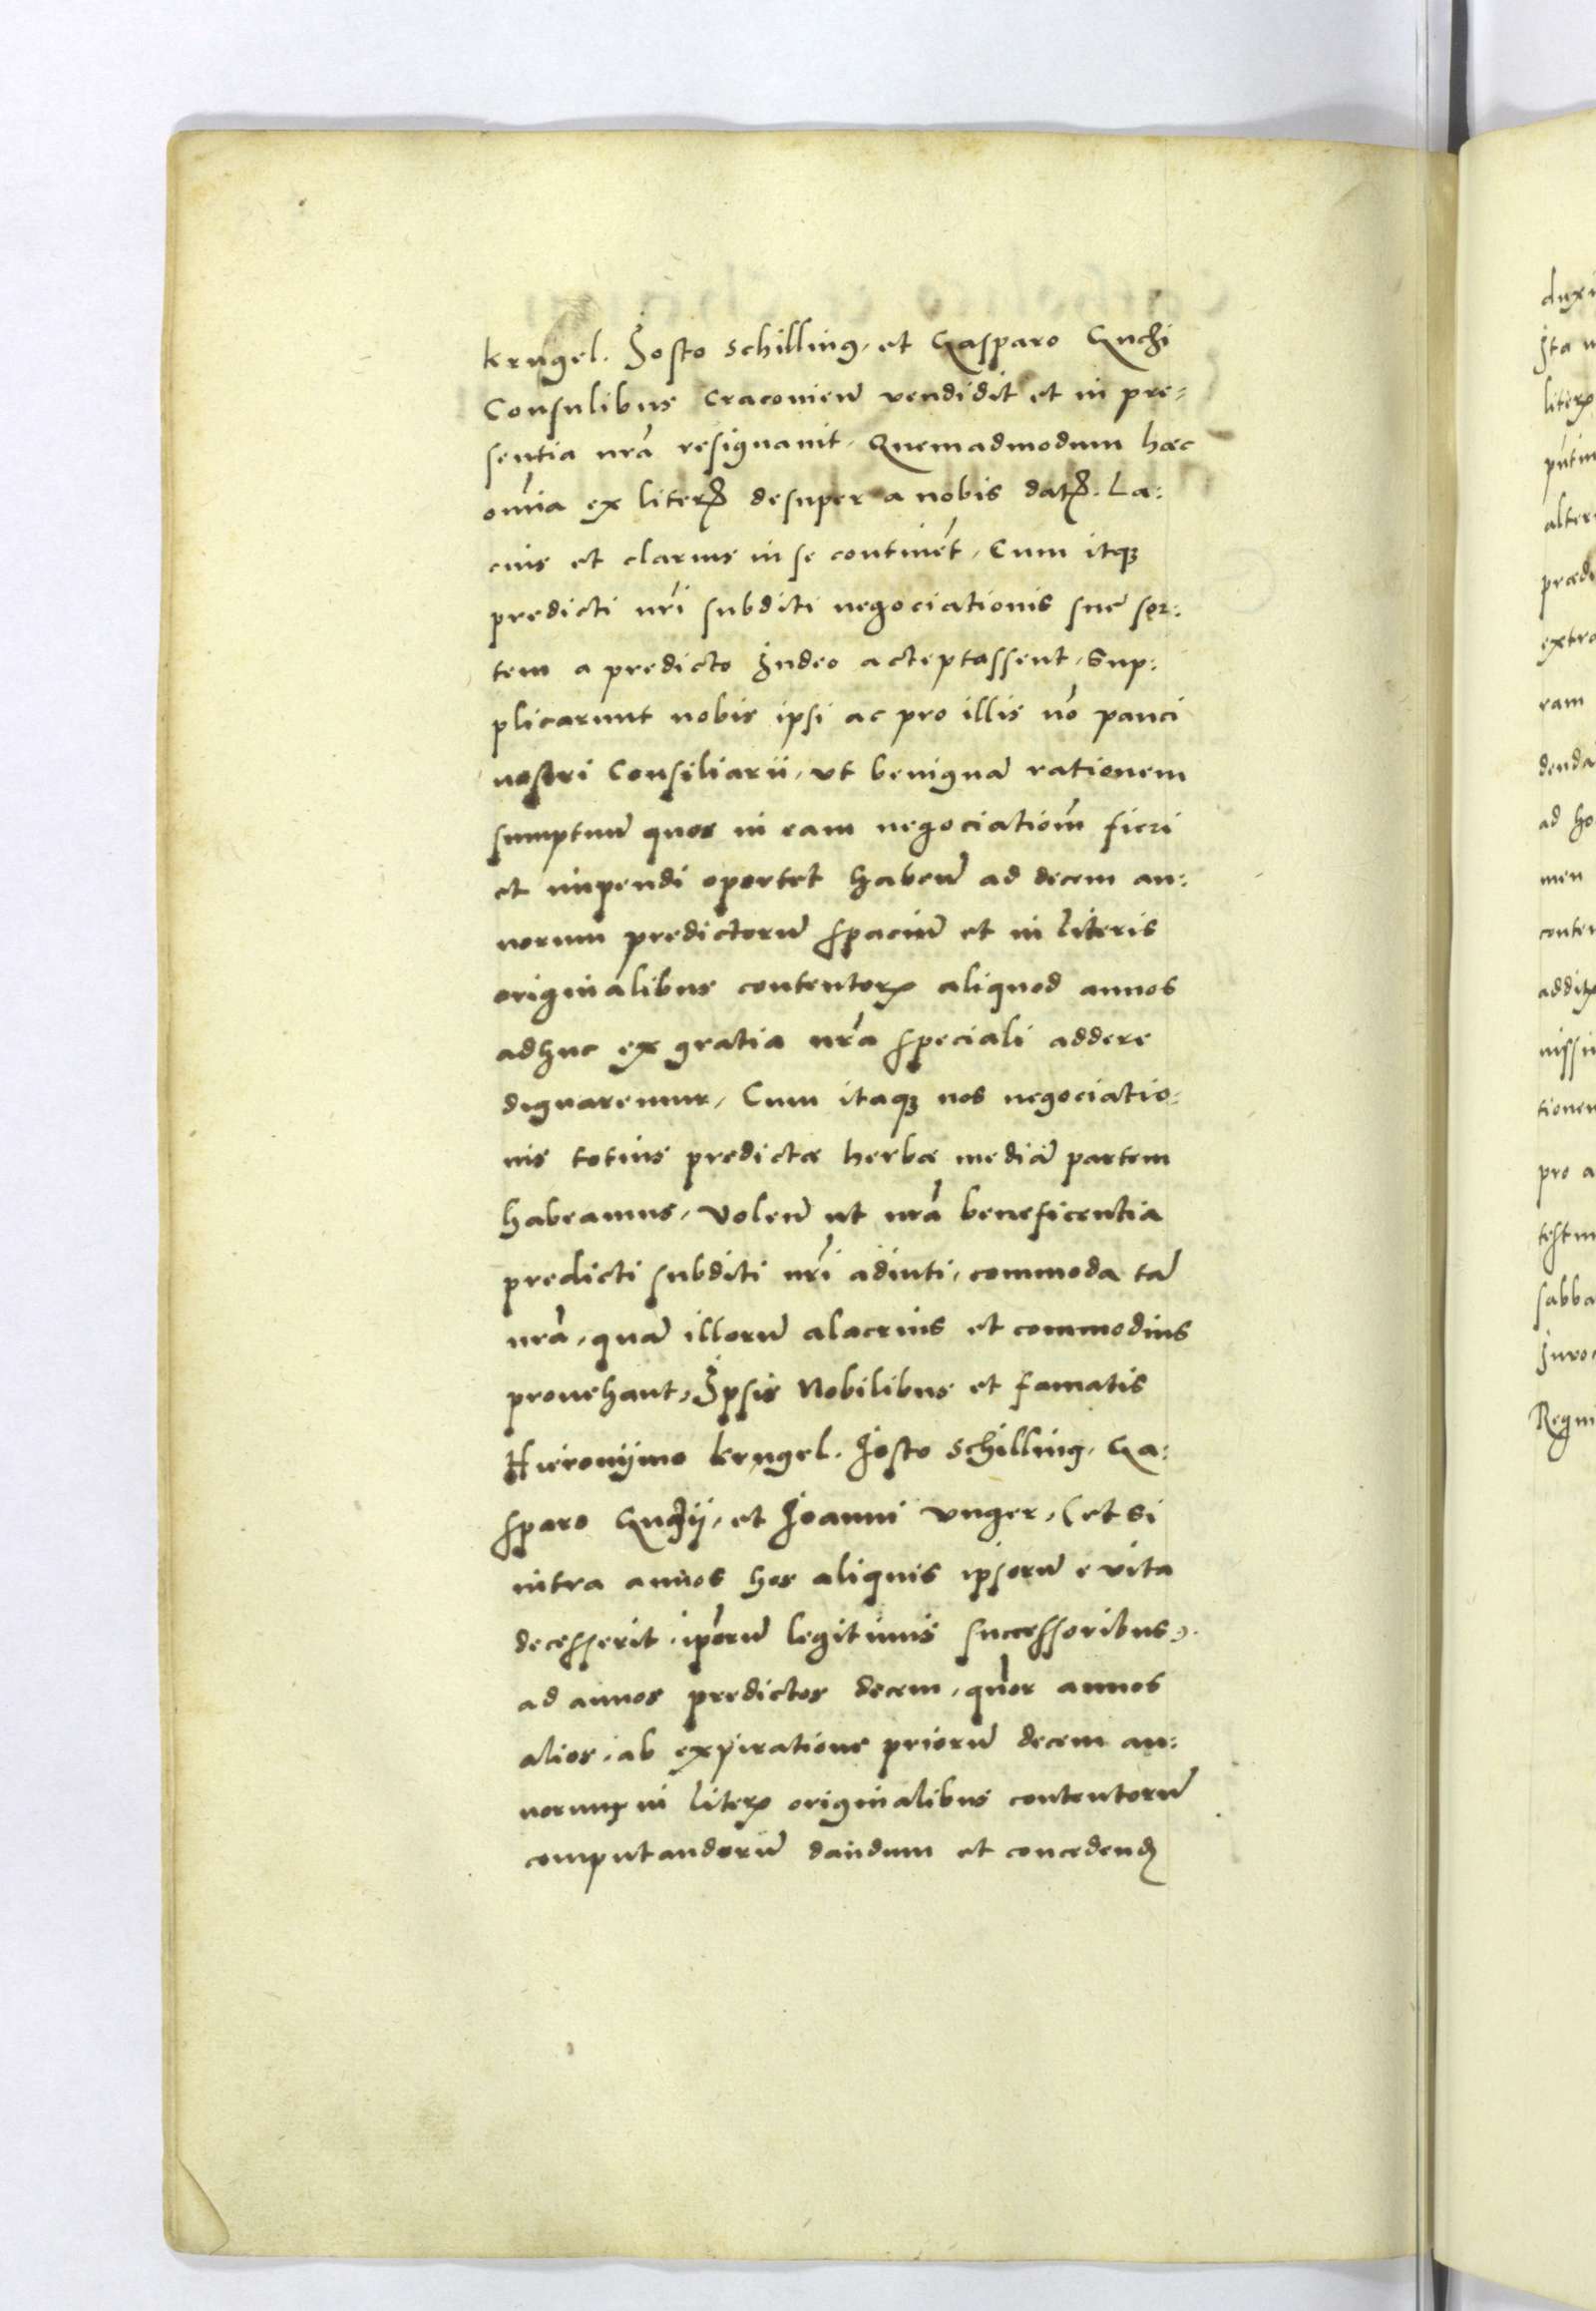 krugel. Josto schilling, et Gasparo Guchi
Consulibus cracovieñ vendidit et in pre=
sentia nrã resignavit. Quemadmodum haec
omia ex literꝝ desuper a nobis datꝝ. La:
cius et clarius in se continẽt. Cum itqꝫ
predicti nri subditi negociationis sue sor:
tem a predicto Judeo acceptassent. Sup:
plicarunt nobis ipsi ac pro illis nõ pauci
nostri Consiliarii, ut benignã rationem
sumptuũ quos in eam negociationẽ fieri
et impendi oportet habeñ ad decem an:
norum predictorũ spaciũ et in literis
originalibus contentorꝫ aliquod annos
adhuc ex gratia nrã speciali addere
dignaremur. Cum itaqꝫ nos negociatio:
nis totius predictae herbae mediã partem
habeamus, Voleñ ut nrã beneficentia
predicti subditi nri adiuti, commoda tã
nrã, quã illorũ alacrius et commodius
provehant, Ipsis Nobilibus et famatis
Hieronijmo krugel. Josto schilling, Ga:
sparo et Joanni Unger, (et si
intra annos hos aliquis ipsorũ e vita
decesserit, iporũ legitimis successoribus).
ad annos predictos decem, quor annos
alios, ab expiratione priorũ decem an:
norum in literꝫ originalibus contentorũ
computandorũ dandum et concedendꝫ
duxi
Ita u
literꝫ
putin
alter
praedi
extra
ram
denda
ad ho
men
conten
additꝫ
nissi
tionem
pro a
testim
sabba
Juro
Regni